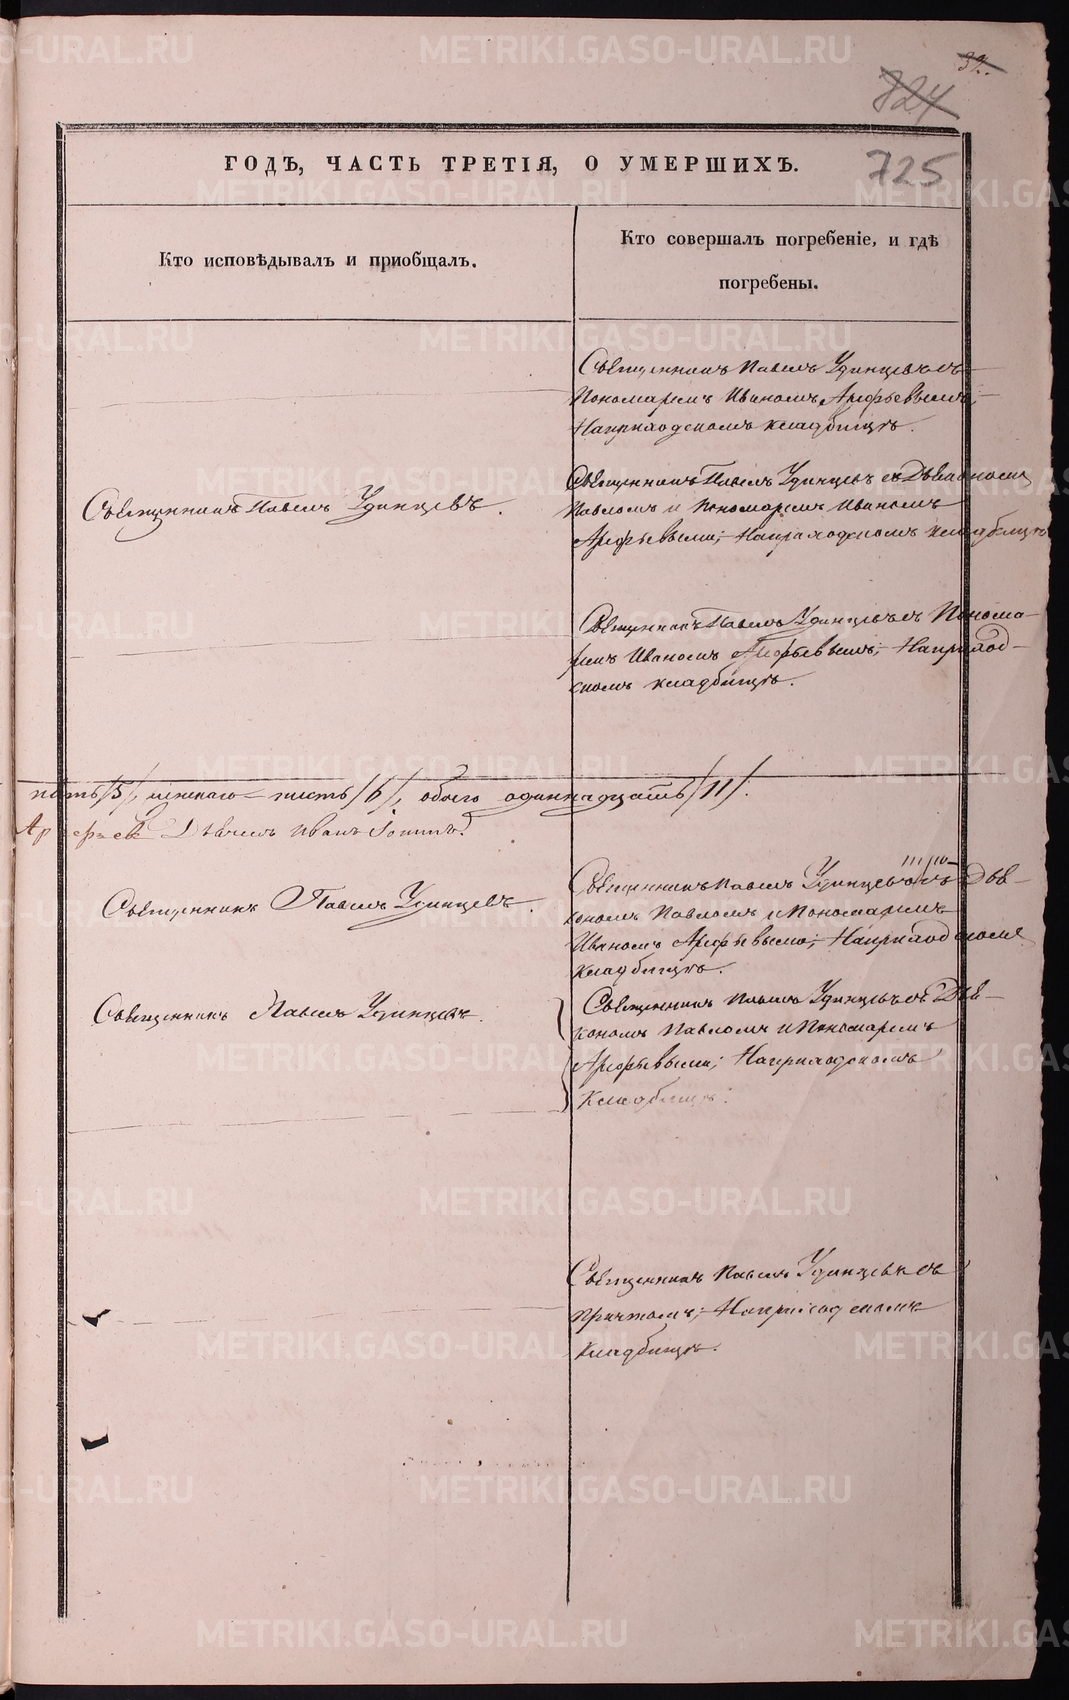 METRIKI.GASO-URAL.RU
32.
724
725
ГОДЪ, ЧАСТЬ ТРЕТІЯ, О УМЕРШИХЪ.
Кто исповѣдывалъ и пріобщалъ.
Кто совершалъ погребеніе, и гдѣ
погребены.
Священникъ Павелъ Удинцевъ съ
Пономаремъ Иваномъ Арефьевымъ;
На приходскомъ кладбищѣ.
Священникъ Павелъ Удинцевъ.
Священникъ Павелъ Удинцевъ съ Дьякономъ
Павломъ и Пономаремъ Иваномъ
Арефьевыми; На приходскомъ кладбищѣ
Священникъ Павелъ Удинцевъ съ Понома-
ремъ Иваномъ Арефьевымъ; На приход-
скомъ кладбищѣ.
пять /5/, женскаго шесть /6/, обоего одиннадцать /11/.
Дьячекъ Иванъ
Священникъ Павелъ Удинцевъ.
Священникъ Павелъ Удинцевъ съ Дья-
кономъ Павломъ и Пономаремъ
Иваномъ Арефьевыми; На приходскомъ
кладбищѣ.
Священникъ Павелъ Удинцевъ.
Священникъ Павелъ Удинцевъ съ Дья-
кономъ Павломъ и Пономаремъ
Арефьевыми; На приходскомъ
Кладбищѣ.
Священникъ Павелъ Удинцевъ съ
Причтомъ; На приходскомъ
кладбищѣ.